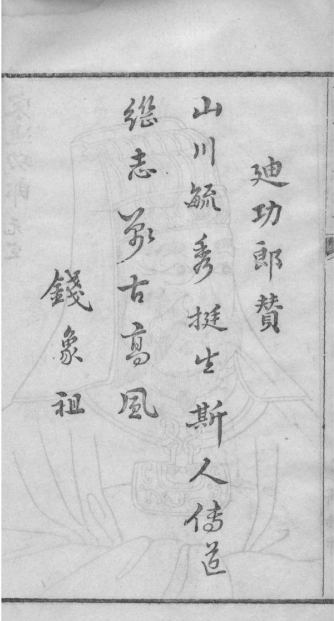 廸功郎賛
山川毓秀挺生斯人傳道
繼志萬古高風
錢象祖